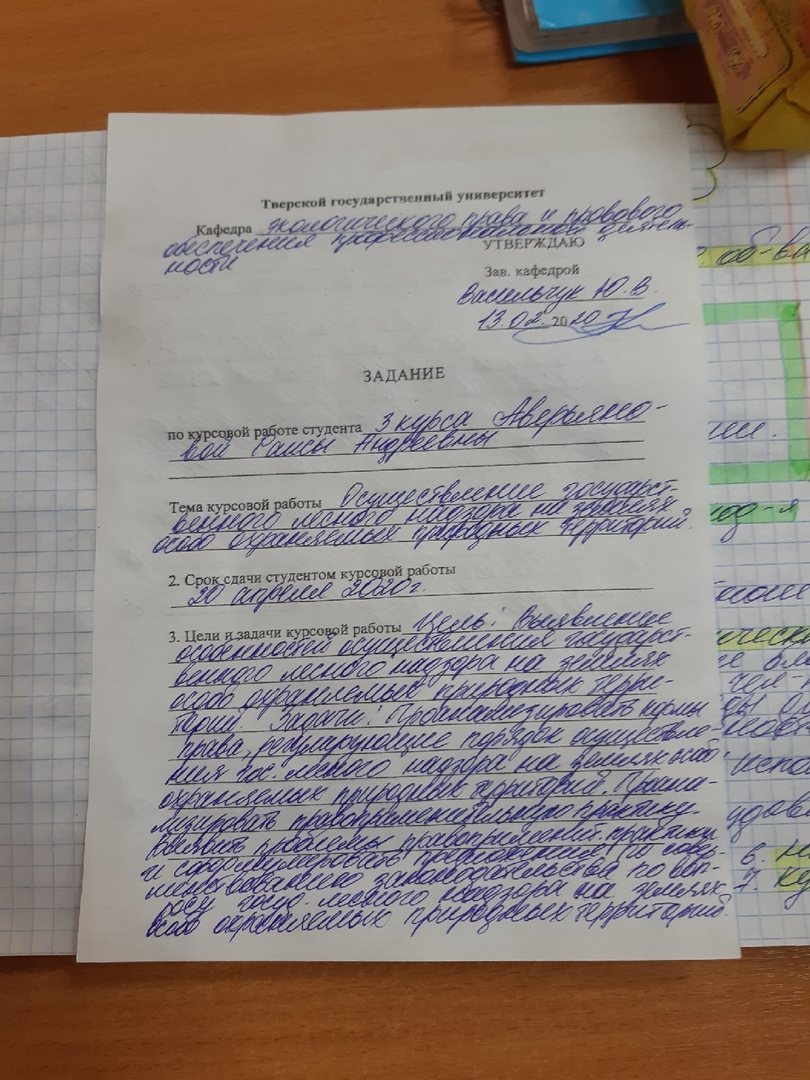 Тверской государственный университет
Кафедра экологического права и правового
обеспечения профессиональной деятель-
ности
УТВЕРЖДАЮ
Зав. кафедрой
Васильчук Ю.В.
13.02.2020
ЗАДАНИЕ
по курсовой работе студента 3 курса Аверьяно-
вой Раисы Андреевны
Тема курсовой работы Осуществление государст-
венного лесного надзора на землях
особо охраняемых природных территорий.
2. Срок сдачи студентом курсовой работы
20 апреля 2020г.
3. Цели и задачи курсовой работы Цель: Выявление
особенностей осуществления государст-
венного лесного надзора на землях
особо охраняемых природных терри-
торий. Задачи: Проанализировать нормы
права, регулирующие порядок осуществле-
ния гос. лесного надзора на землях особо
охраняемых природных территорий. Проана-
лизировать правоприменительную практику.
Выявить проблемы правопримениt. практики
и сформулировать предложения по совер-
шенствованию законодательства по воп-
росу госуд. лесного надзора на землях
особо охраняемых природных территорий.
об-ва
под-я
чел-
испо
удов
6.
7.